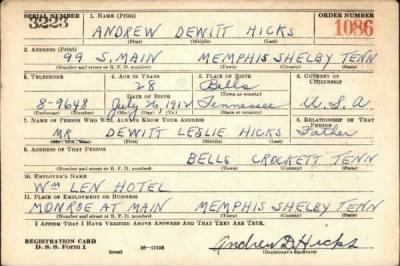 SERIAL NUMBER 1. NAME (Print) ORDER NUMBER
3223 ANDREW DEWITT HICKS 1086
(First) (Middle) (Last)
2. ADDRESS (Print)
99 S. MAIN MEMPHIS SHELBY TENN
(Number and street or R. F. D. number) (Town) (County) (State)
3. TELEPHONE 4. AGE IN YEARS 5. PLACE OF BIRTH 6. COUNTRY OF CITIZENSHIP
28 Bells
DATE OF BIRTH (Town or county)
8-9648 July 26, 1912 Tennessee U.S.A
(Exchange) (Number) (Mo.) (Day) (Yr.) (State or country)
7. NAME OF PERSON WHO WILL ALWAYS KNOW YOUR ADDRESS 8. RELATIONSHIP OF THAT PERSON
MR DEWITT LESLIE HICKS Father
(Mr., Mrs., Miss) (First) (Middle) (Last)
9. ADDRESS OF THAT PERSON
BELLS CROCKETT TENN
(Number and street or R. F. D. number) (Town) (County) (State)
10. EMPLOYER'S NAME
Wm LEN HOTEL
11. PLACE OF EMPLOYMENT OR BUSINESS
MONROE AT MAIN MEMPHIS SHELBY TENN
(Number and street or R. F. D. number) (Town) (County) (State)
I AFFIRM THAT I HAVE VERIFIED ABOVE ANSWERS AND THAT THEY ARE TRUE.
REGISTRATION CARD
D. S. S. Form 1 (over) 16—17105 Andrew D. Hicks
(Registrant's signature)